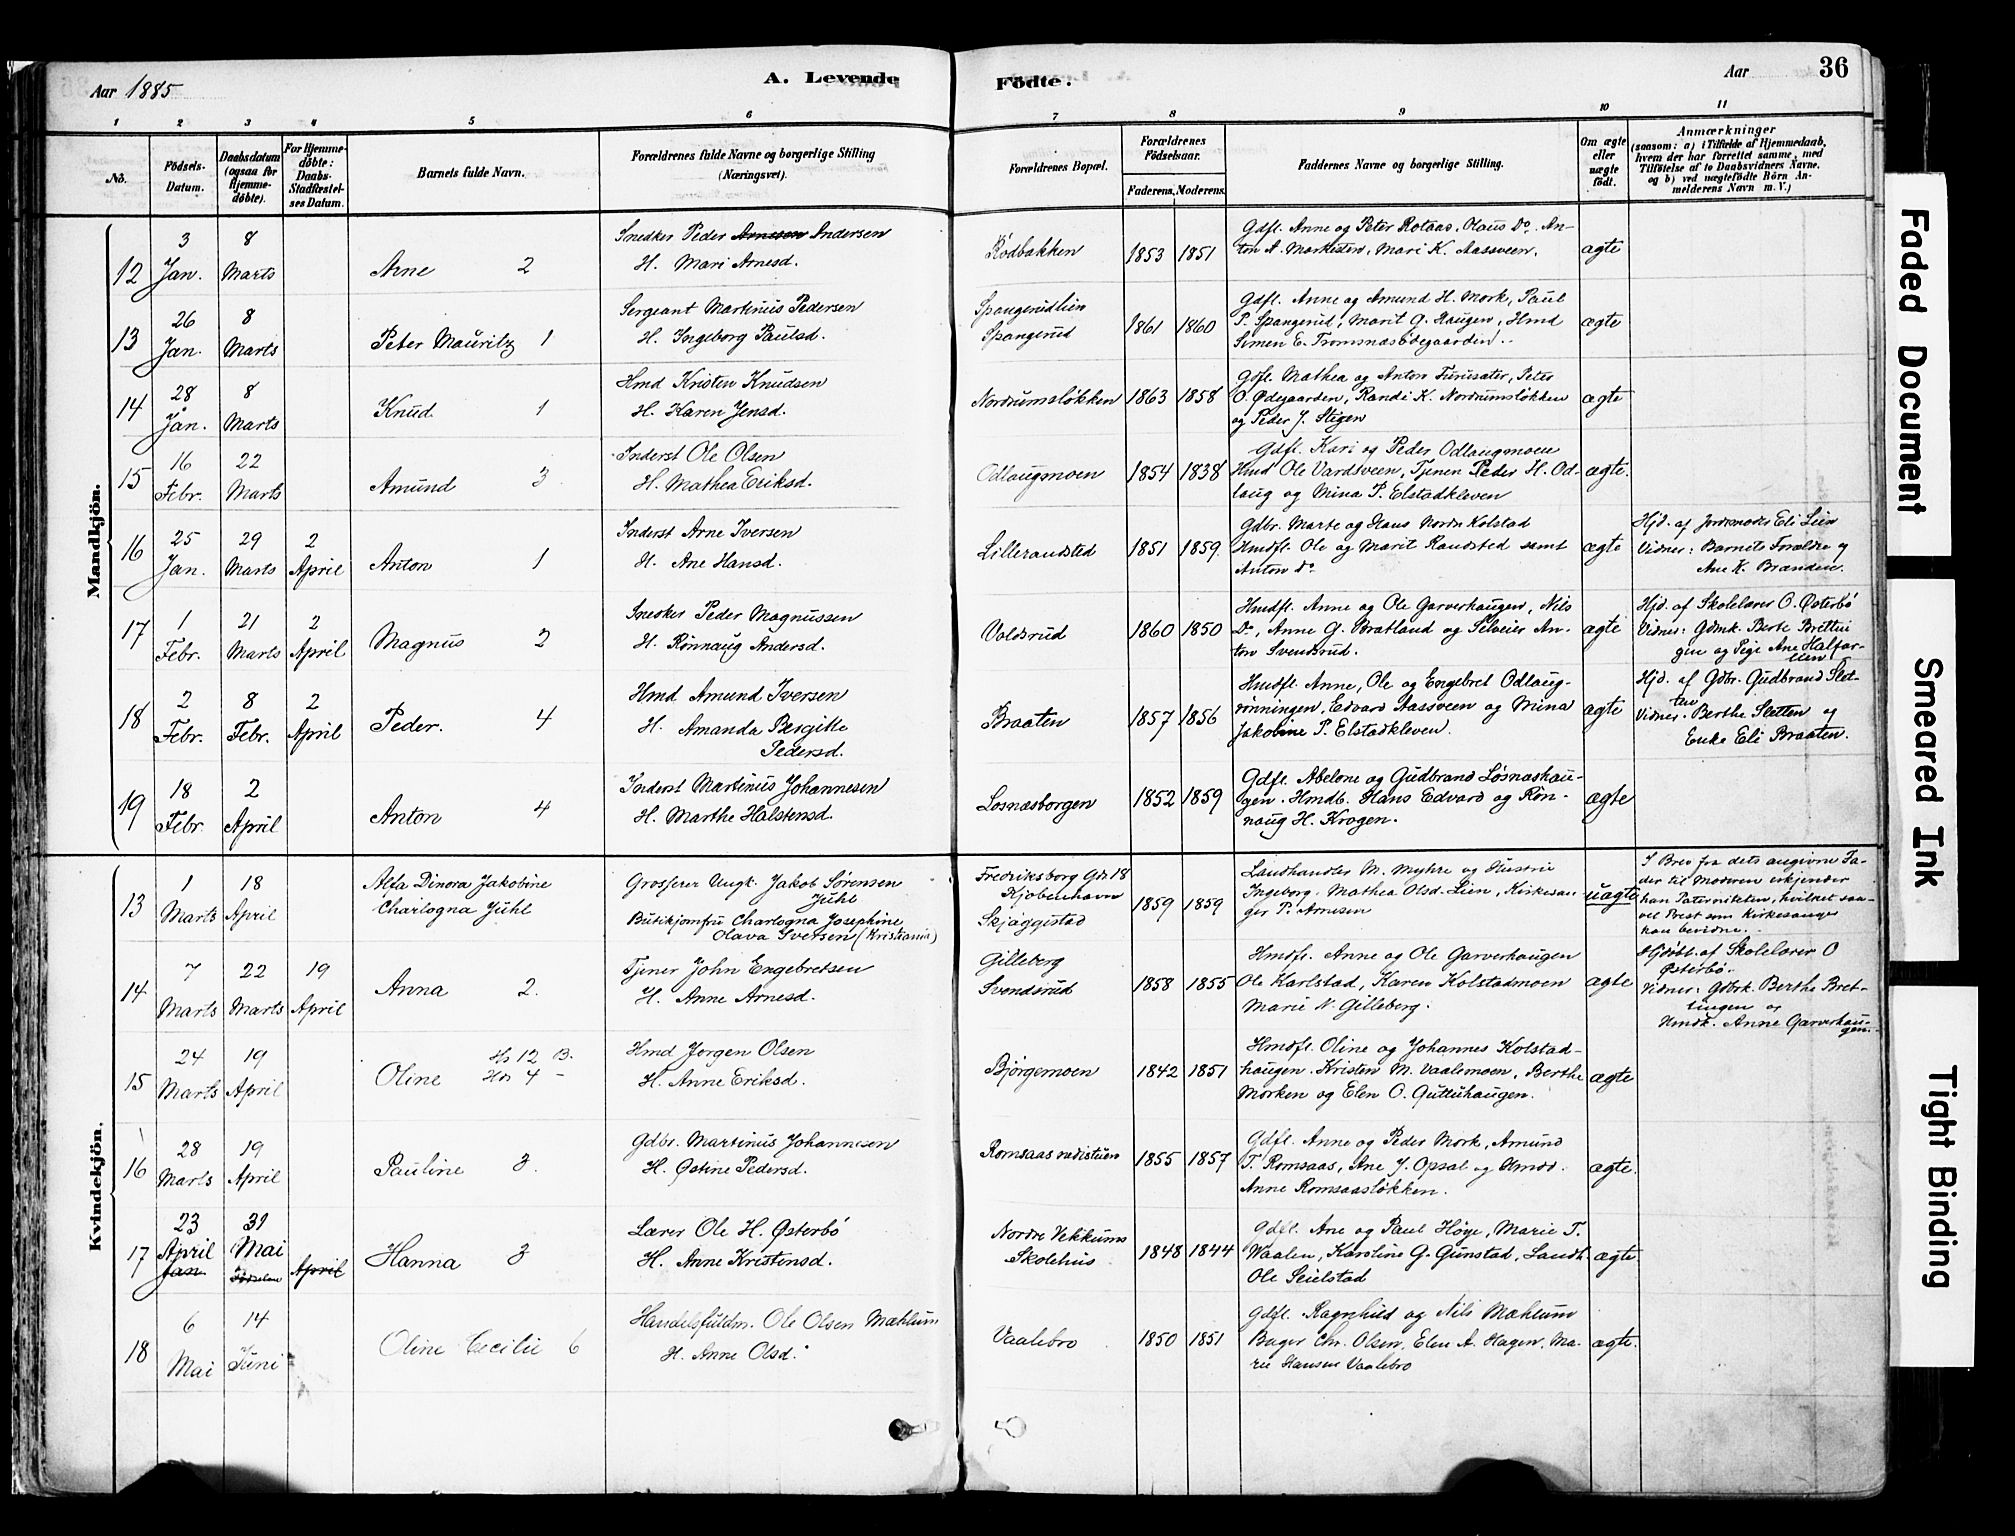 Aar 1885
A. Levende
Födte.
Aar
36
1 2 3 4 5 6 7 8 9 10 11
No.
Födsels-
Datum.
Daabsdatum
(ogsaa for
Hjemme-
döbte).
For Hjemme-
döbte:
Daabs-
Stadfæstel-
ses Datum.
Barnets fulde Navn.
Forældrenes fulde Navne og borgerlige Stilling
(Næringsvei).
Forældrenes Bopæl.
Forældrenes
Födselsaar.
Faderens.
Moderens.
Faddernes Navne og borgerlige Stilling.
Om ægte
eller
uægte
födt.
Anmærkninger
(saasom: a) i Tilfælde af Hjemmedaab,
hvem der har forrettet samme, med
Tilföielse af to Daabsvidners Navne.
og b) ved uægtefödte Börn An-
melderens Navn m. V.)
Mandkjön.
12
3
Jan.
8
Marts
Arne 2
Snedker Peder Arnesen Andersen
H. Mari Arnesd.
Rødbakken
1853 1851
Gdfl. Anne og Peter Rotaas, Olaus Do, An-
ton A. Markesten, Mari K. Aassveen.
ægte
13
26
Jan.
8
Marts
Peter Mauritz 1
Sergeant Martinus Pedersen
H. Ingeborg Paulsd.
Spangerudlien
Spangerud
1861 1860
Gdfl. Anne og Amund H. Mork, Paul
P. Spangerud, Marit G. Haugen, Hmd
Simen E. Tromsnæsødegaarden.
ægte
14
28
Jan.
8
Marts
Knud 1
Hmd Kristen Knudsen
H. Karen Jensd.
Nordrumsløkken
1863 1858
Gdfl. Mathea og Anton Furusæter, Peter
O. Ødegaarden, Randi K. Nordrumsløkken
og Peder J. Stigen
ægte
15
16
Febr.
22
Marts
Amund 3
Inderst Ole Olsen
H. Mathea Eriksd.
Odlaugmoen
1854 1838
Gdfl. Kari og Peder Odlaugmoen
Hmd Ole Vardsveen, Tjener Peder H. Od-
laug og Mina P. Elstadkleven
ægte.
16
25
Jan.
29
Marts
2
April
Anton 1
Inderst Arne Iversen
H. Ane Hansd.
Lillerandsted
1851 1859
Gdbr. Marte og Hans Nordre Kolstad
Hmdfl. Ole og Marit Randsted samt
Anton Do
ægte
Hjd. af Jordemoder Eli Lien
Vidner: Barnets Forældre og
Ane K. Brænden.
17
1
Febr.
21
Marts
2
April
Magnus 2
Snedker Peder Magnussen
H. Rønnaug Andersd.
Voldsrud
1860 1850
Hmdfl. Anne og Ole Garverhaugen, Nils
Do, Anne G. Bratland og Selveier An-
ton Svendsrud.
ægte
Hjd. af Skolelærer O. Østerbø
Vidner: Gdmk. Berte Brettin
gen og Pige Ane Halfar-
lien
18
2
Febr.
8
Febr.
2
April
Peder. 4
Hmd Amund Iversen
H. Amanda Bergitte
Pedersd.
Braaten
1857 1856
Hmdfl. Anne, Ole og Engebret Odlaug-
rønningen, Edvard Aassveen og Mina
Jakobine P. Elstadkleven.
ægte
Hjd. af Gdbr. Gudbrand Slet-
ten
Vidner: Berthe Sletten og
Enke Eli Braaten.
19
18
Febr.
2
April
Anton 4
Inderst Martinus Johannesen
H. Marthe Halstensd.
Losnæsborgen
1852 1859
Gdfl. Abelone og Gudbrand Løsnæshau-
gen. Hmdb. Hans Edvard og Røn-
naug H. Krogen.
ægte
Kvindekjön.
13
1
Marts
18
April
Alfa Dinora Jakobine
Charlogna Juhl
Grosserer Ungk. Jakob Sørensen
Juhl
Butikjomfru Charlogna Josephine
Olava Svetsen (Kristiania)
Fredriksborg Gd. 18
Kjøbenhavn
Skjæggestad
1859 1859
Landhandler M. Myhre og Hustru
Ingeborg, Mathea Olsd. Lien, Kirkesan-
ger P. Arnesen
uægte
I Brev fra dets angivne Fa-
der til Moderen erkjender
han Paterniteten, hvilket saa-
vel Prest som Kirkesanger
kan bevidne.
14
7
Marts
22
Marts
19
April
Anna 2.
Tjener John Engebretsen
H. Anne Arnesd.
Gilleberg
Svendsrud
1858 1855
Hmdfl. Anne og Ole Garverhaugen
Ole Karlstad, Karen Kolstadmoen
Marie N. Gilleberg.
ægte
Hjdøbt. af Skolelærer O
Østerbø.
Vidner: Gdbrk. Berthe Bret-
tingen og
Hmdk. Anne Garverhau-
gen.
15
24
Marts
19
April
Oline
Hs 12 B.
Hs 4 -
Hmd Jørgen Olsen
H. Anne Eriksd.
Bjørgemoen
1842 1851
Hmdfl. Oline og Johannes Kolstad-
haugen. Kristen M. Vaalemoen, Berthe
Morken og Elen O. Guttuhaugen.
ægte
16
28
Marts
19
April
Pauline 3.
Gdbr. Martinus Johannesen
H. Østine Pedersd.
Romsaas nedistuen
1855 1857
Gdfl. Anne og Peder Mork, Amund
T. Romsaas, Ane J. Opsal og Hmdd.
Anne Romsaasløkken.
ægte.
17
23
April
Jan
31
Mai
April
Hanna 3
Lærer Ole H. Østerbø
H. Anne Kristensd.
Nordre Vekkums
Skolehus
1848 1844
Gdfl. Ane og Paul Høye, Marie T.
Waalen, Karoline G. Gunstad, Landh.
Ole Seielstad
ægte
18
6
Mai
14
Juni
Oline Cecilie 6
Handelsfuldm. Ole Olsen Mæhlum
H. Anne Olsd.
Vaalebro
1850 1851
Gdfl. Ragnhild og Nils Mæhlum
Bager Chr. Olsen, Elen A. Hagen, Ma-
rie Hansen Vaalebro
ægte.
Faded Document
Smeared Ink
Tight Binding